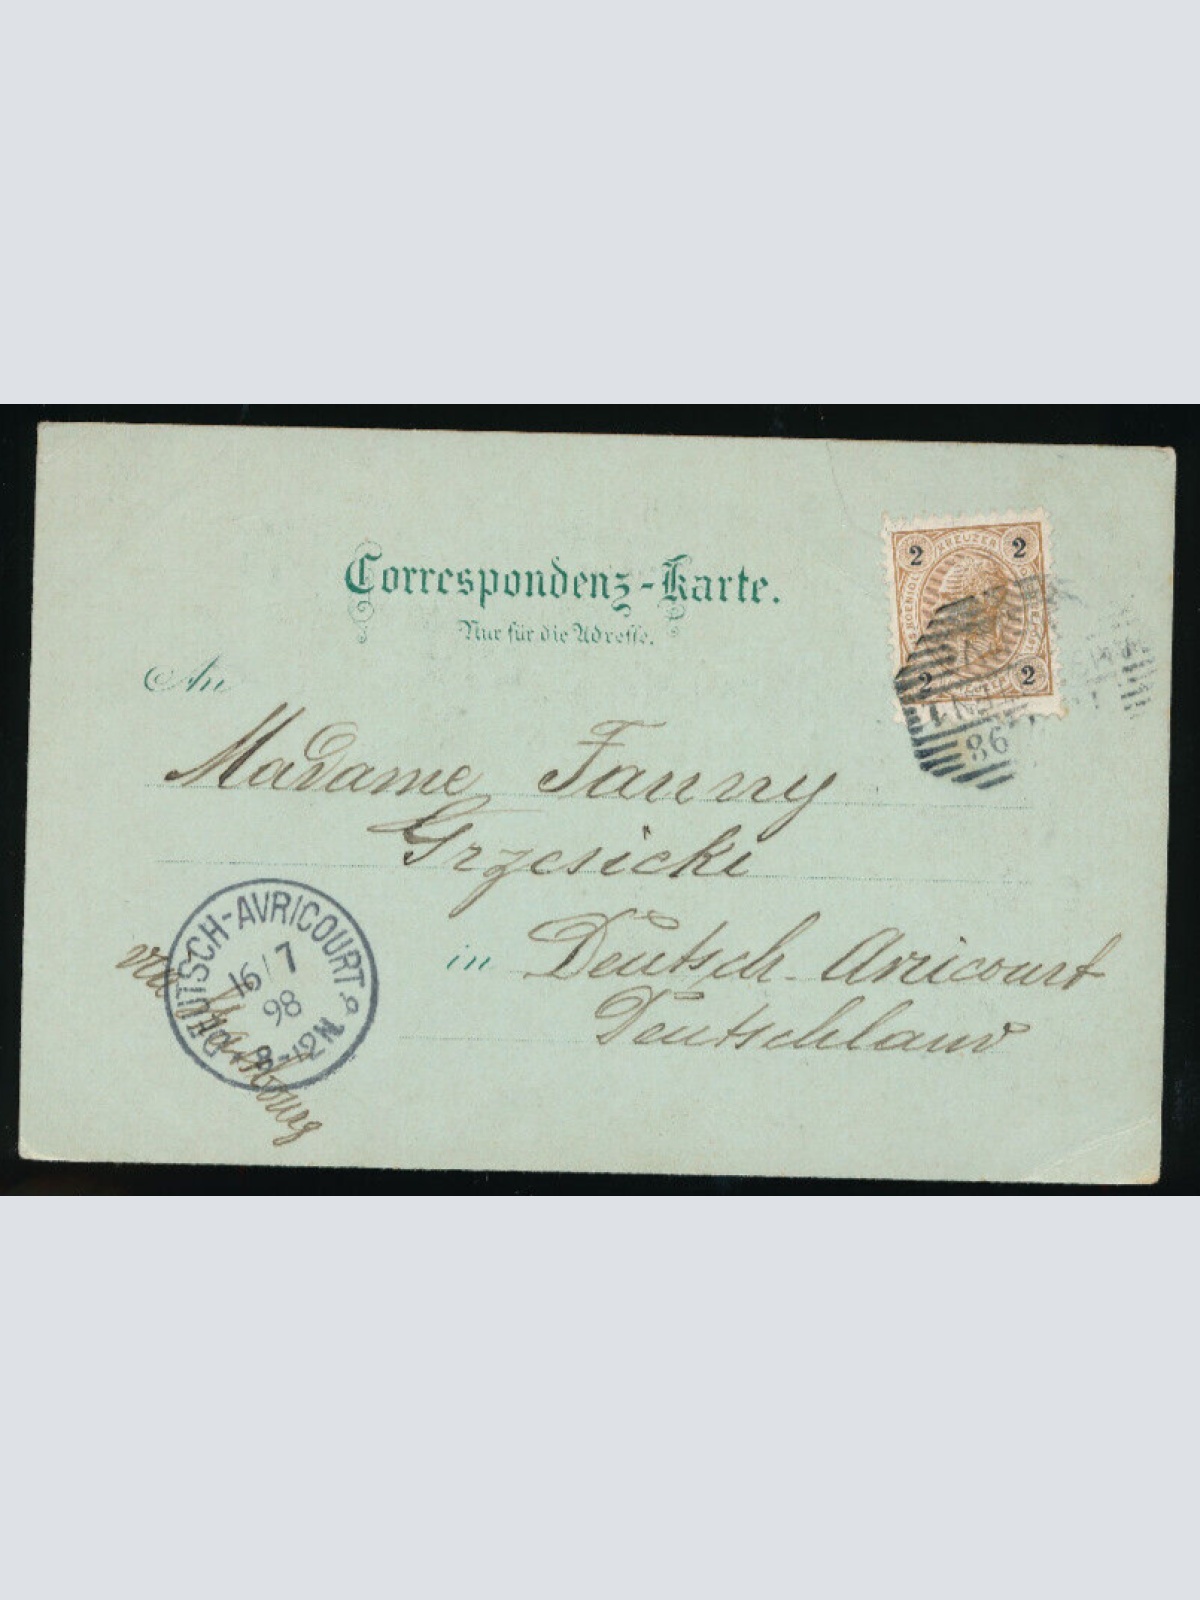 Correspondenz-Karte.
Nur für die Adresse.
An
Madame Fanny
Grzesicki
in Deutsch-Avricourt
Deutschland
via Strassbourg
DEUTSCH-AVRICOURT.
16/7
98
8-12N
KREUZER
2 2
2 2
98